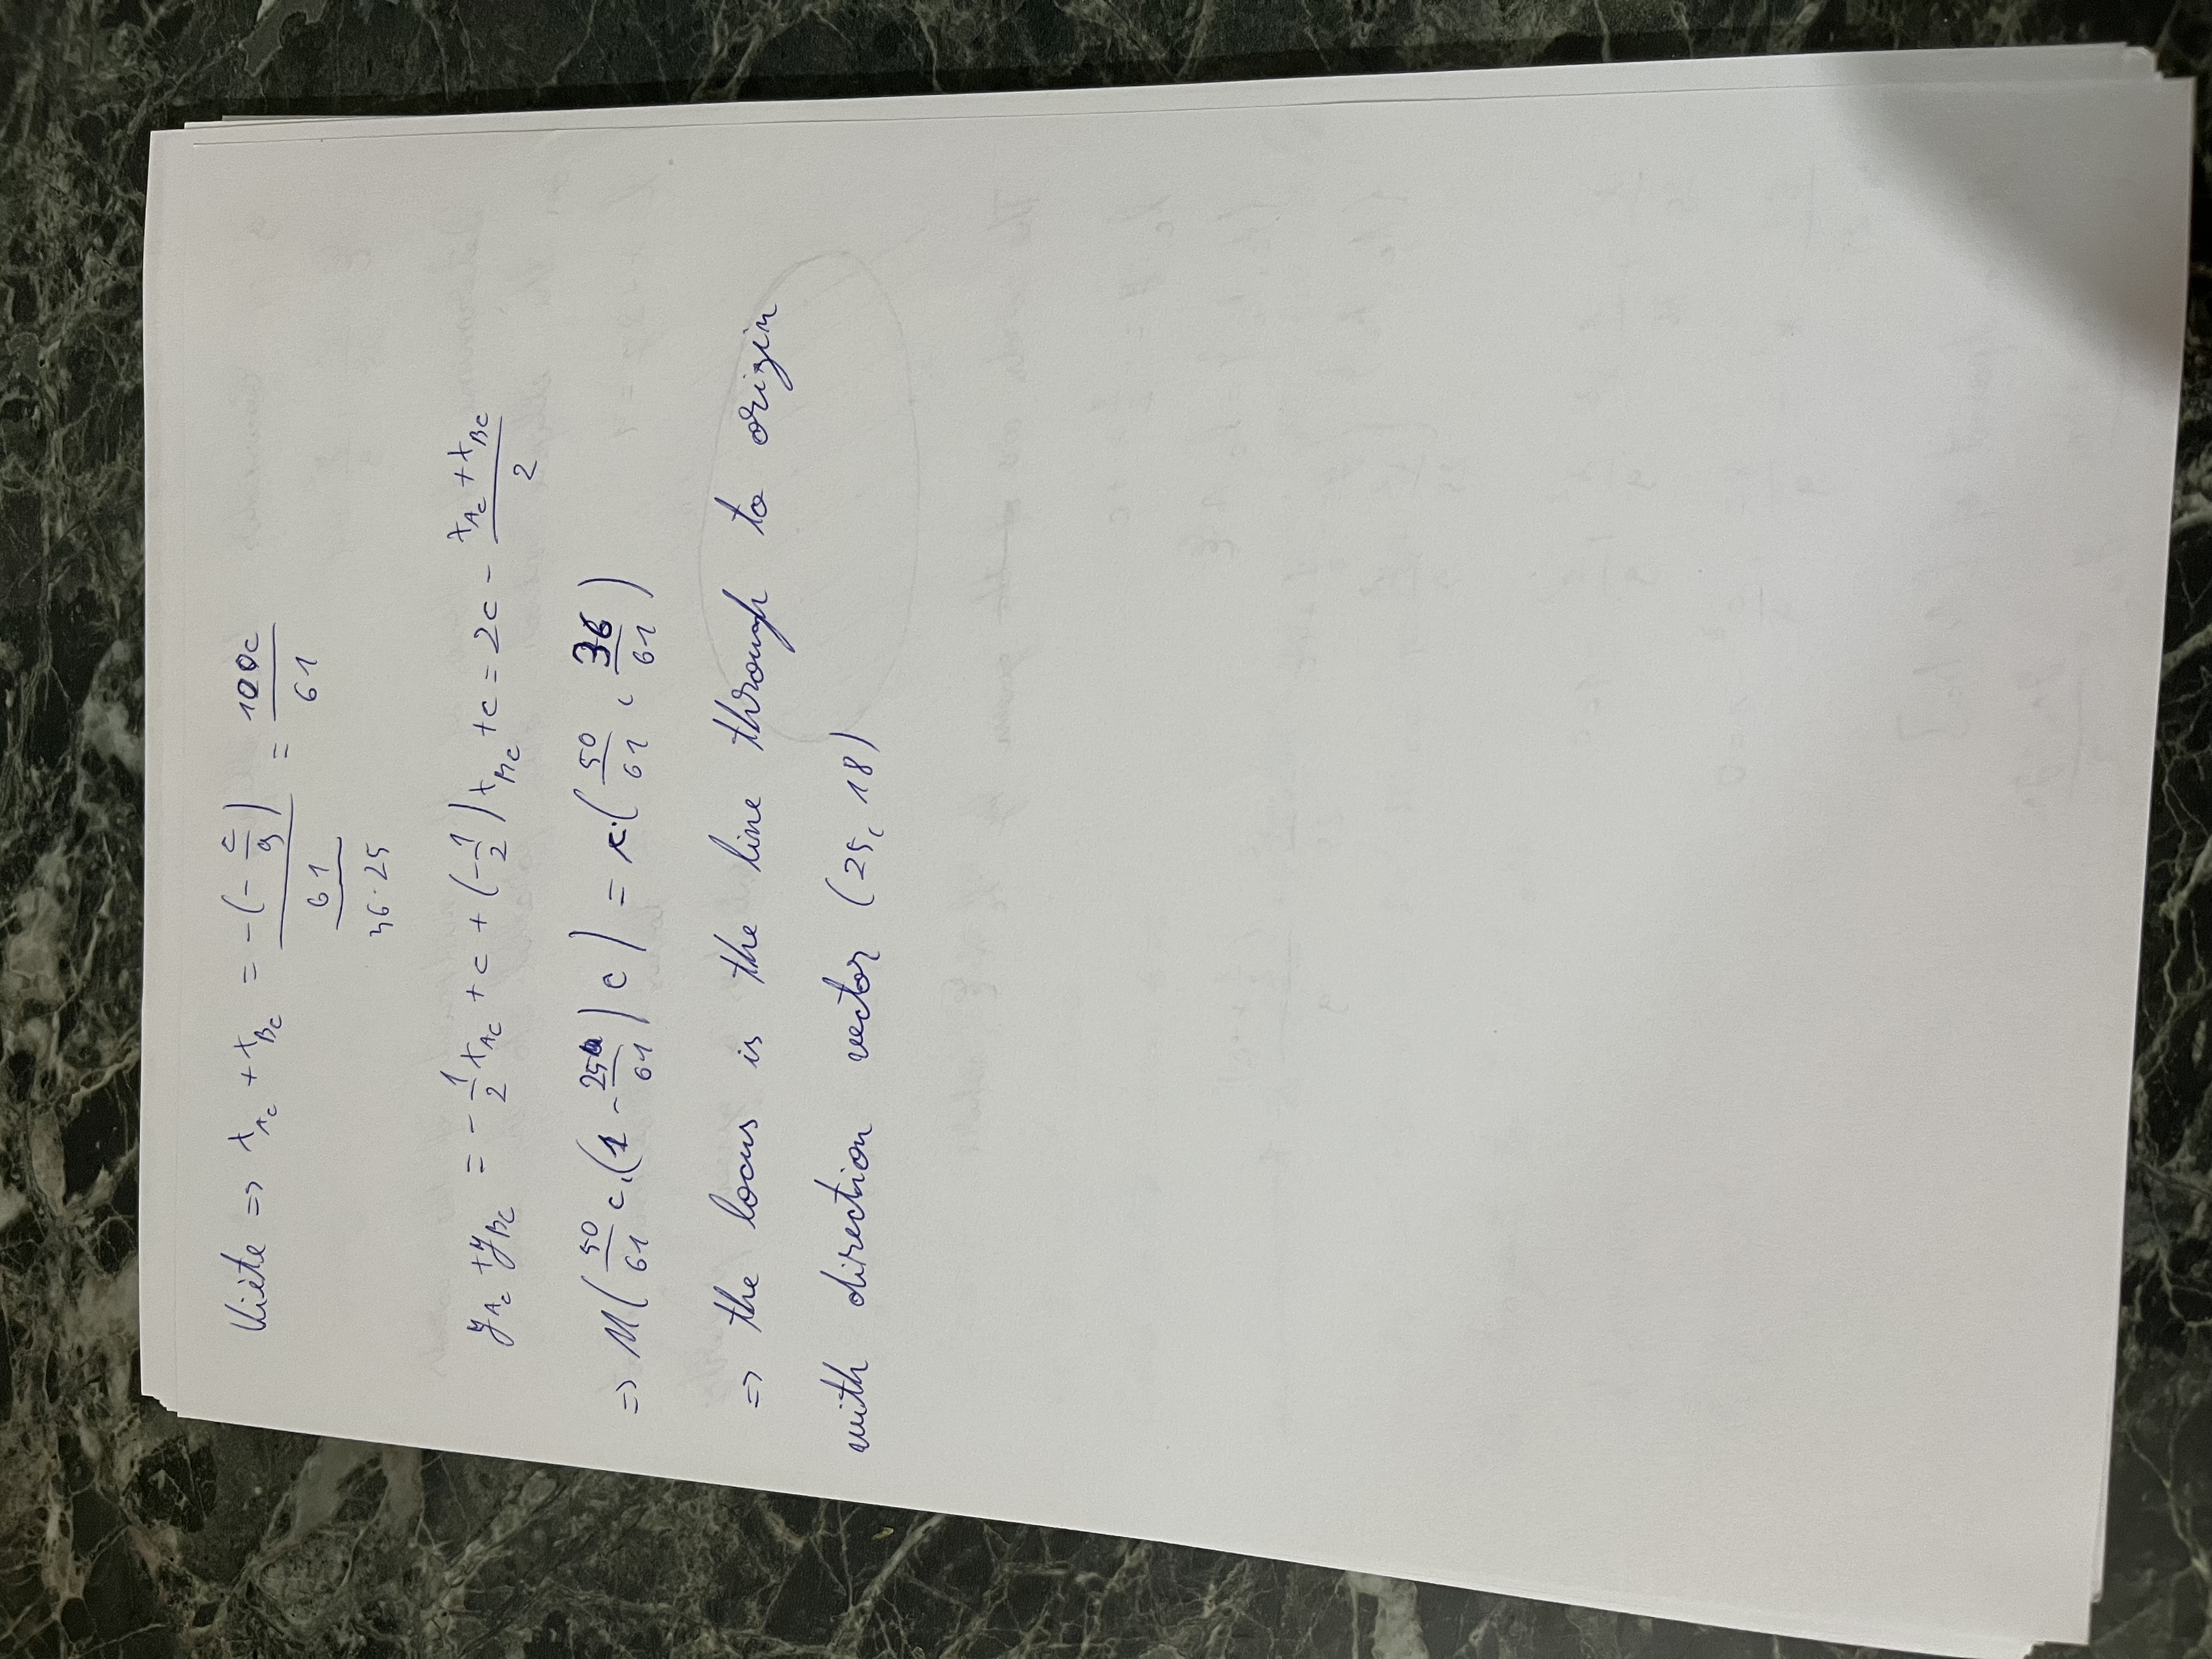 Viète => x_{A_c} + x_{B_c} = \frac{-(-\frac{c}{9})}{\frac{61}{36·25}} = \frac{100c}{61}
y_{A_c} + y_{B_c} = -\frac{1}{2}x_{A_c} + c + (-\frac{1}{2})x_{B_c} + c = 2c - \frac{x_{A_c} + x_{B_c}}{2}
=> M(\frac{50}{61}c, (1 - \frac{25}{61})c) = c·(\frac{50}{61}, \frac{36}{61})
=> the locus is the line through to origin
with direction vector (25, 18)